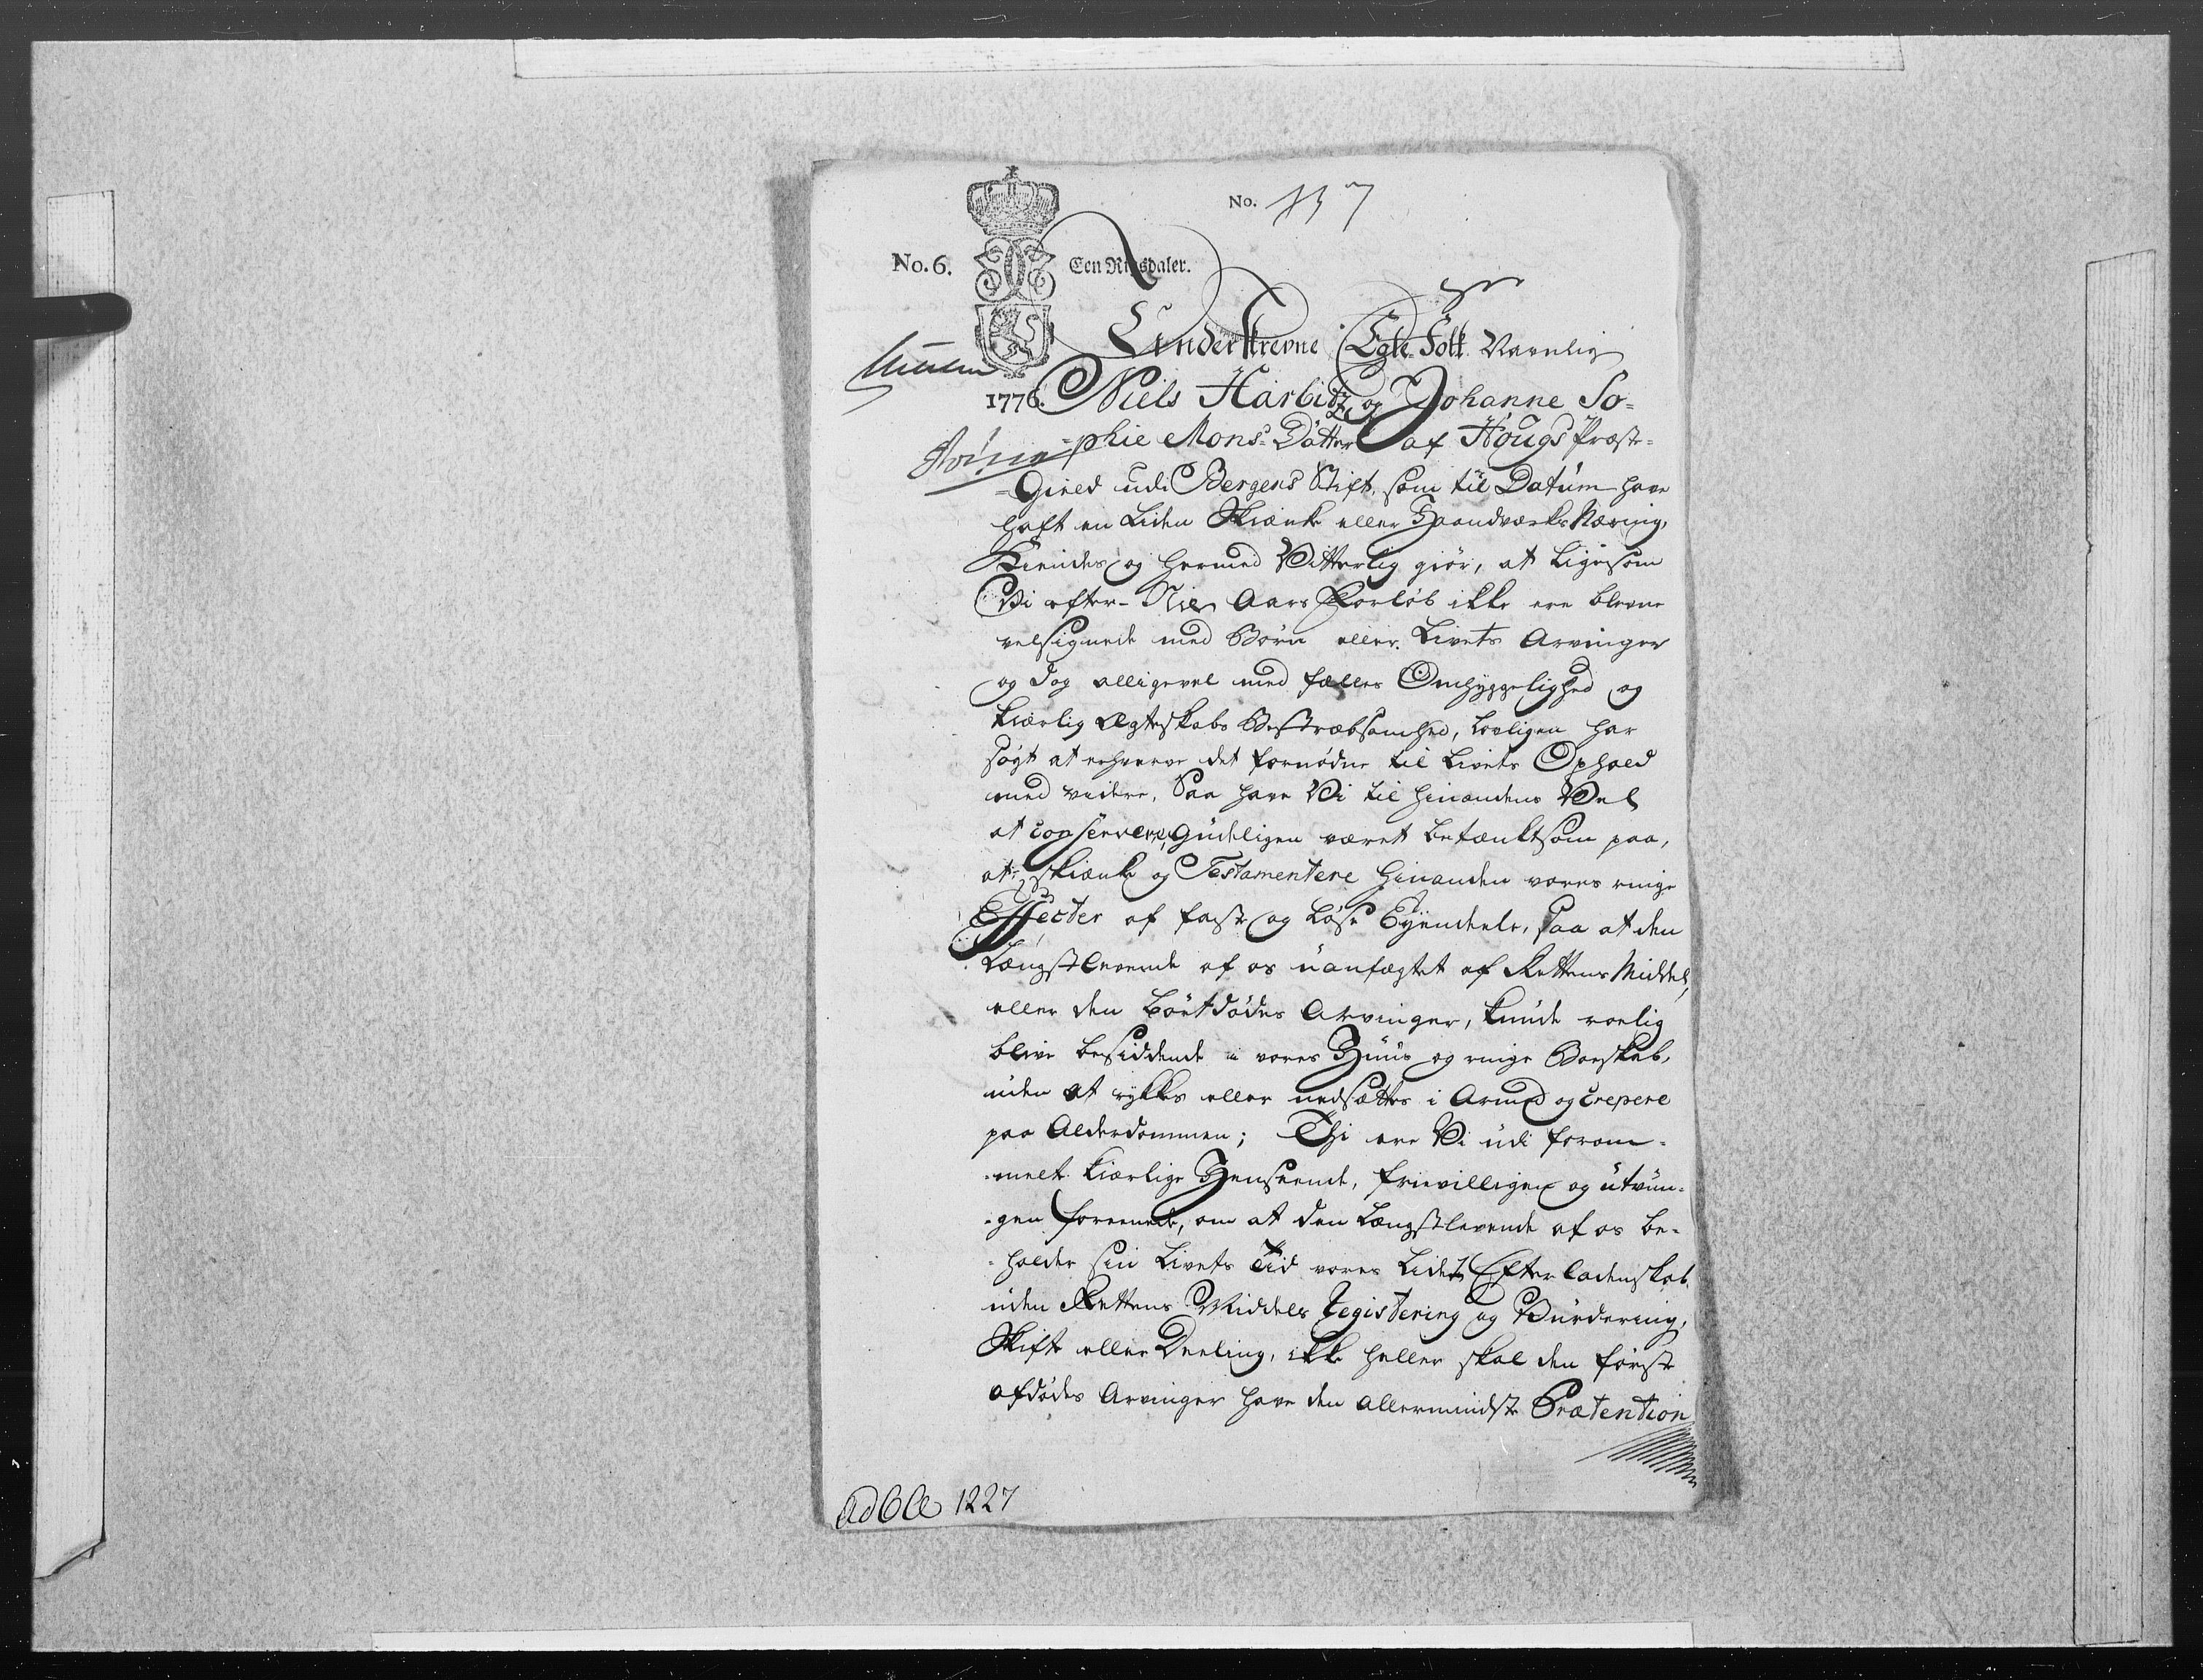 No. 137
No. 6. Een Rigsdaler.
Underskrevne Egte-Folk Navnlig
1776. Niels Harbitz, og Johanne So-
-phie Mons-Datter af Hougs Præste-
-Gield udi Bergens Stift, som til Datum have
haft en Liden Skiænke eller Haandværks Næring,
Kiendes og hermed Vitterlig giør, at ligesom
Vi efter Aars Forløb ikke ere blevne
velsignede med Børn eller Livets Arvinger
og dog alligevel med fælles Omhyggelighed og
kiærlig Ægteskabs Bestræbsomhed, lovligen har
søgt at erhverve det fornødne til Livets Ophold
med videre, Saa have Vi til hinandens Vel
at conservere, Gudeligen været betænktsom paa,
at skiænke og Testamentere hinanden vores ringe
Effecter af faste og Løse Eyendeele, saa at den
Længstlevende af os uanfægtet af Rettens Middel,
eller den bortdødes Arvinger, kunde roelig
blive besiddende i vores Huus og ringe Boeskab,
uden at rykkes eller nedsættes i Armod og Crepere
paa Alderdommen; Thi ere Vi udi forom-
-melte kiærlige Henseende, frievilligen og utvun-
-gen foreenede, om at den Længstlevende af os be-
-holder sin Livets Tid vores Lidet Efterladenskab
uden Rettens Middels Registering og Vurdering,
Skifte eller Deeling, ikke heller skal den først
afdødes Arvinger have den allermindste Prætention
1227